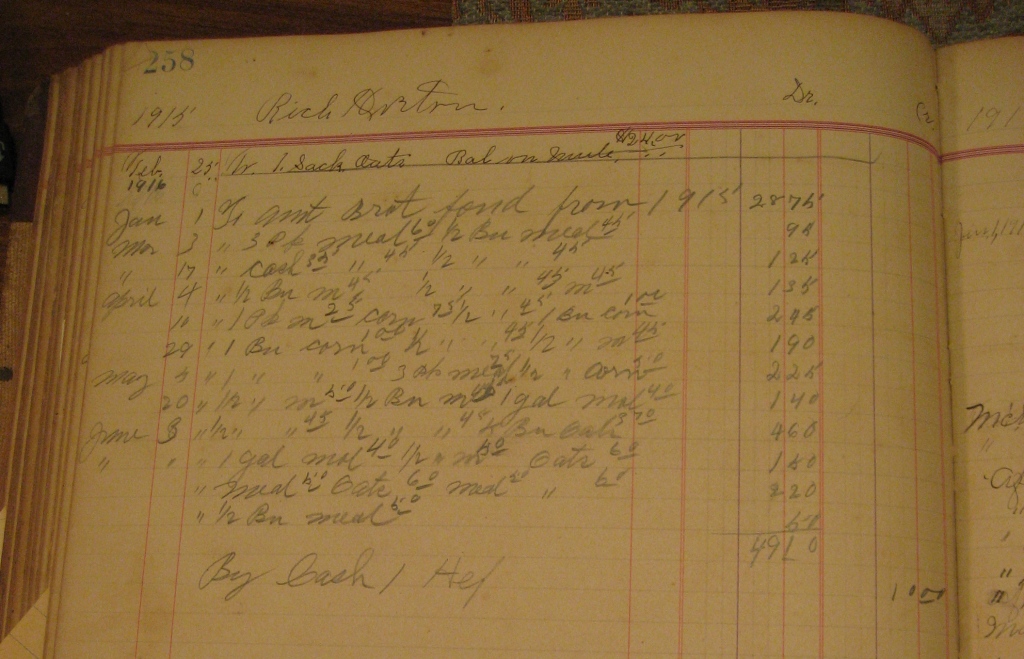 258
1915 Rich Horton. Dr. Cr
Feb. 25 W. 1. Sack Oats Bal on Mule $24.00
1916
Jan 1 To amt Brot forward from 1915 2875
Mar 3 " 3 Pk meal 60 1/2 Bu meal 45
" 17 " Cash 35 " 45 1/2 " " 45 125
April 4 " 1/2 Bu m 45 1/2 " " 45 m 45 135
" 1 Pk m 25 corn 75 1/2 " 45 1 Bu corn 1 00 245
29 " 1 Bu corn 1 00 1/2 " " 45 1/2 " m 45 190
May " 1 " " 1 00 3 Pk meal 75 1/2 " corn 50 225
20 " 1/2 " m 50 1/2 Bu m 1 gal mol 40 140
June 3 " 1/2 " " 45 1/2 " " 45 Bu Oats 460
" " " 1 gal mol 40 1/2 " m 50 Oats 60 150
" Meal 50 Oats 60 meal " 60 220
" 1/2 Bu meal 50 50
4910
By Cash / 1 00
191